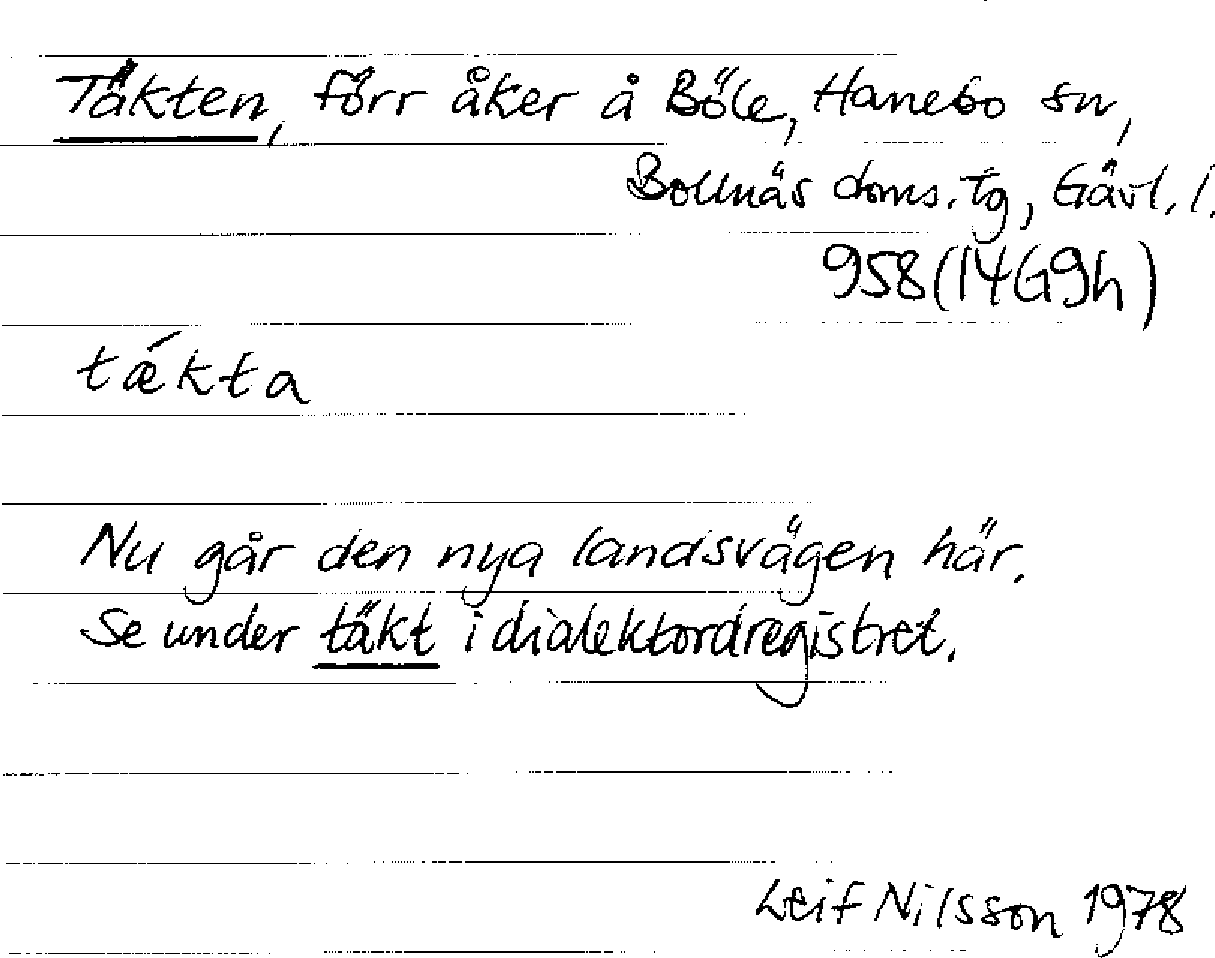 Täkten, förr åker å Böle, Hanebo sn,
Bollnäs doms. tg, Gävl. l.
958 (14G9h)
tǽkta
Nu går den nya landsvägen här.
Se under täkt i dialektordregistret.
Leif Nilsson 1978